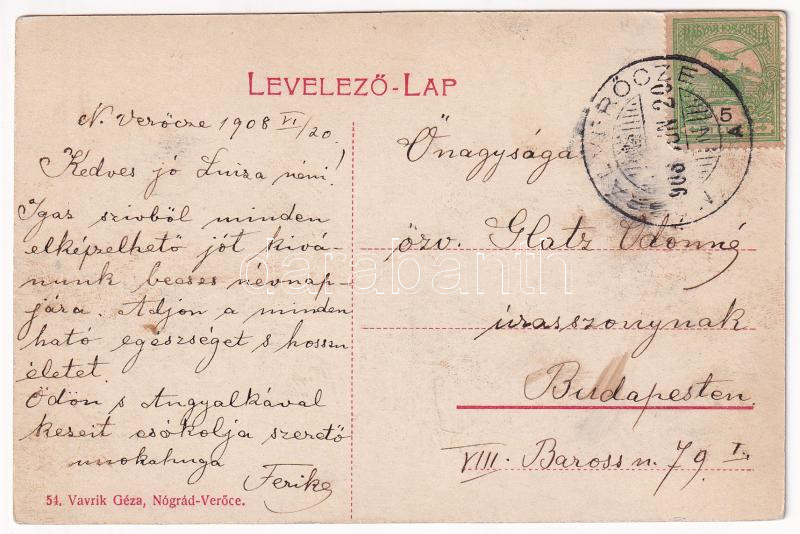 LEVELEZŐ-LAP
N. Verőcze 1908 VI/20.
Kedves jó Luiza néni!
Igaz szivből minden
elképzelhető jót kivá-
nunk becses névnap-
jára. Adjon a minden
ható egészséget s hosszu
életet.
Ödön s Angyalkával
kezeit csókolja szerető
unokahuga
Ferike
54. Vavrik Géza, Nógrád-Verőce.
MAGYAR KIR. POSTA
5
908
20
A
Őnagysága
özv. Glatz Ödönné
úrasszonynak
Budapesten.
VIII. Baross u. 79 I.
darabanth